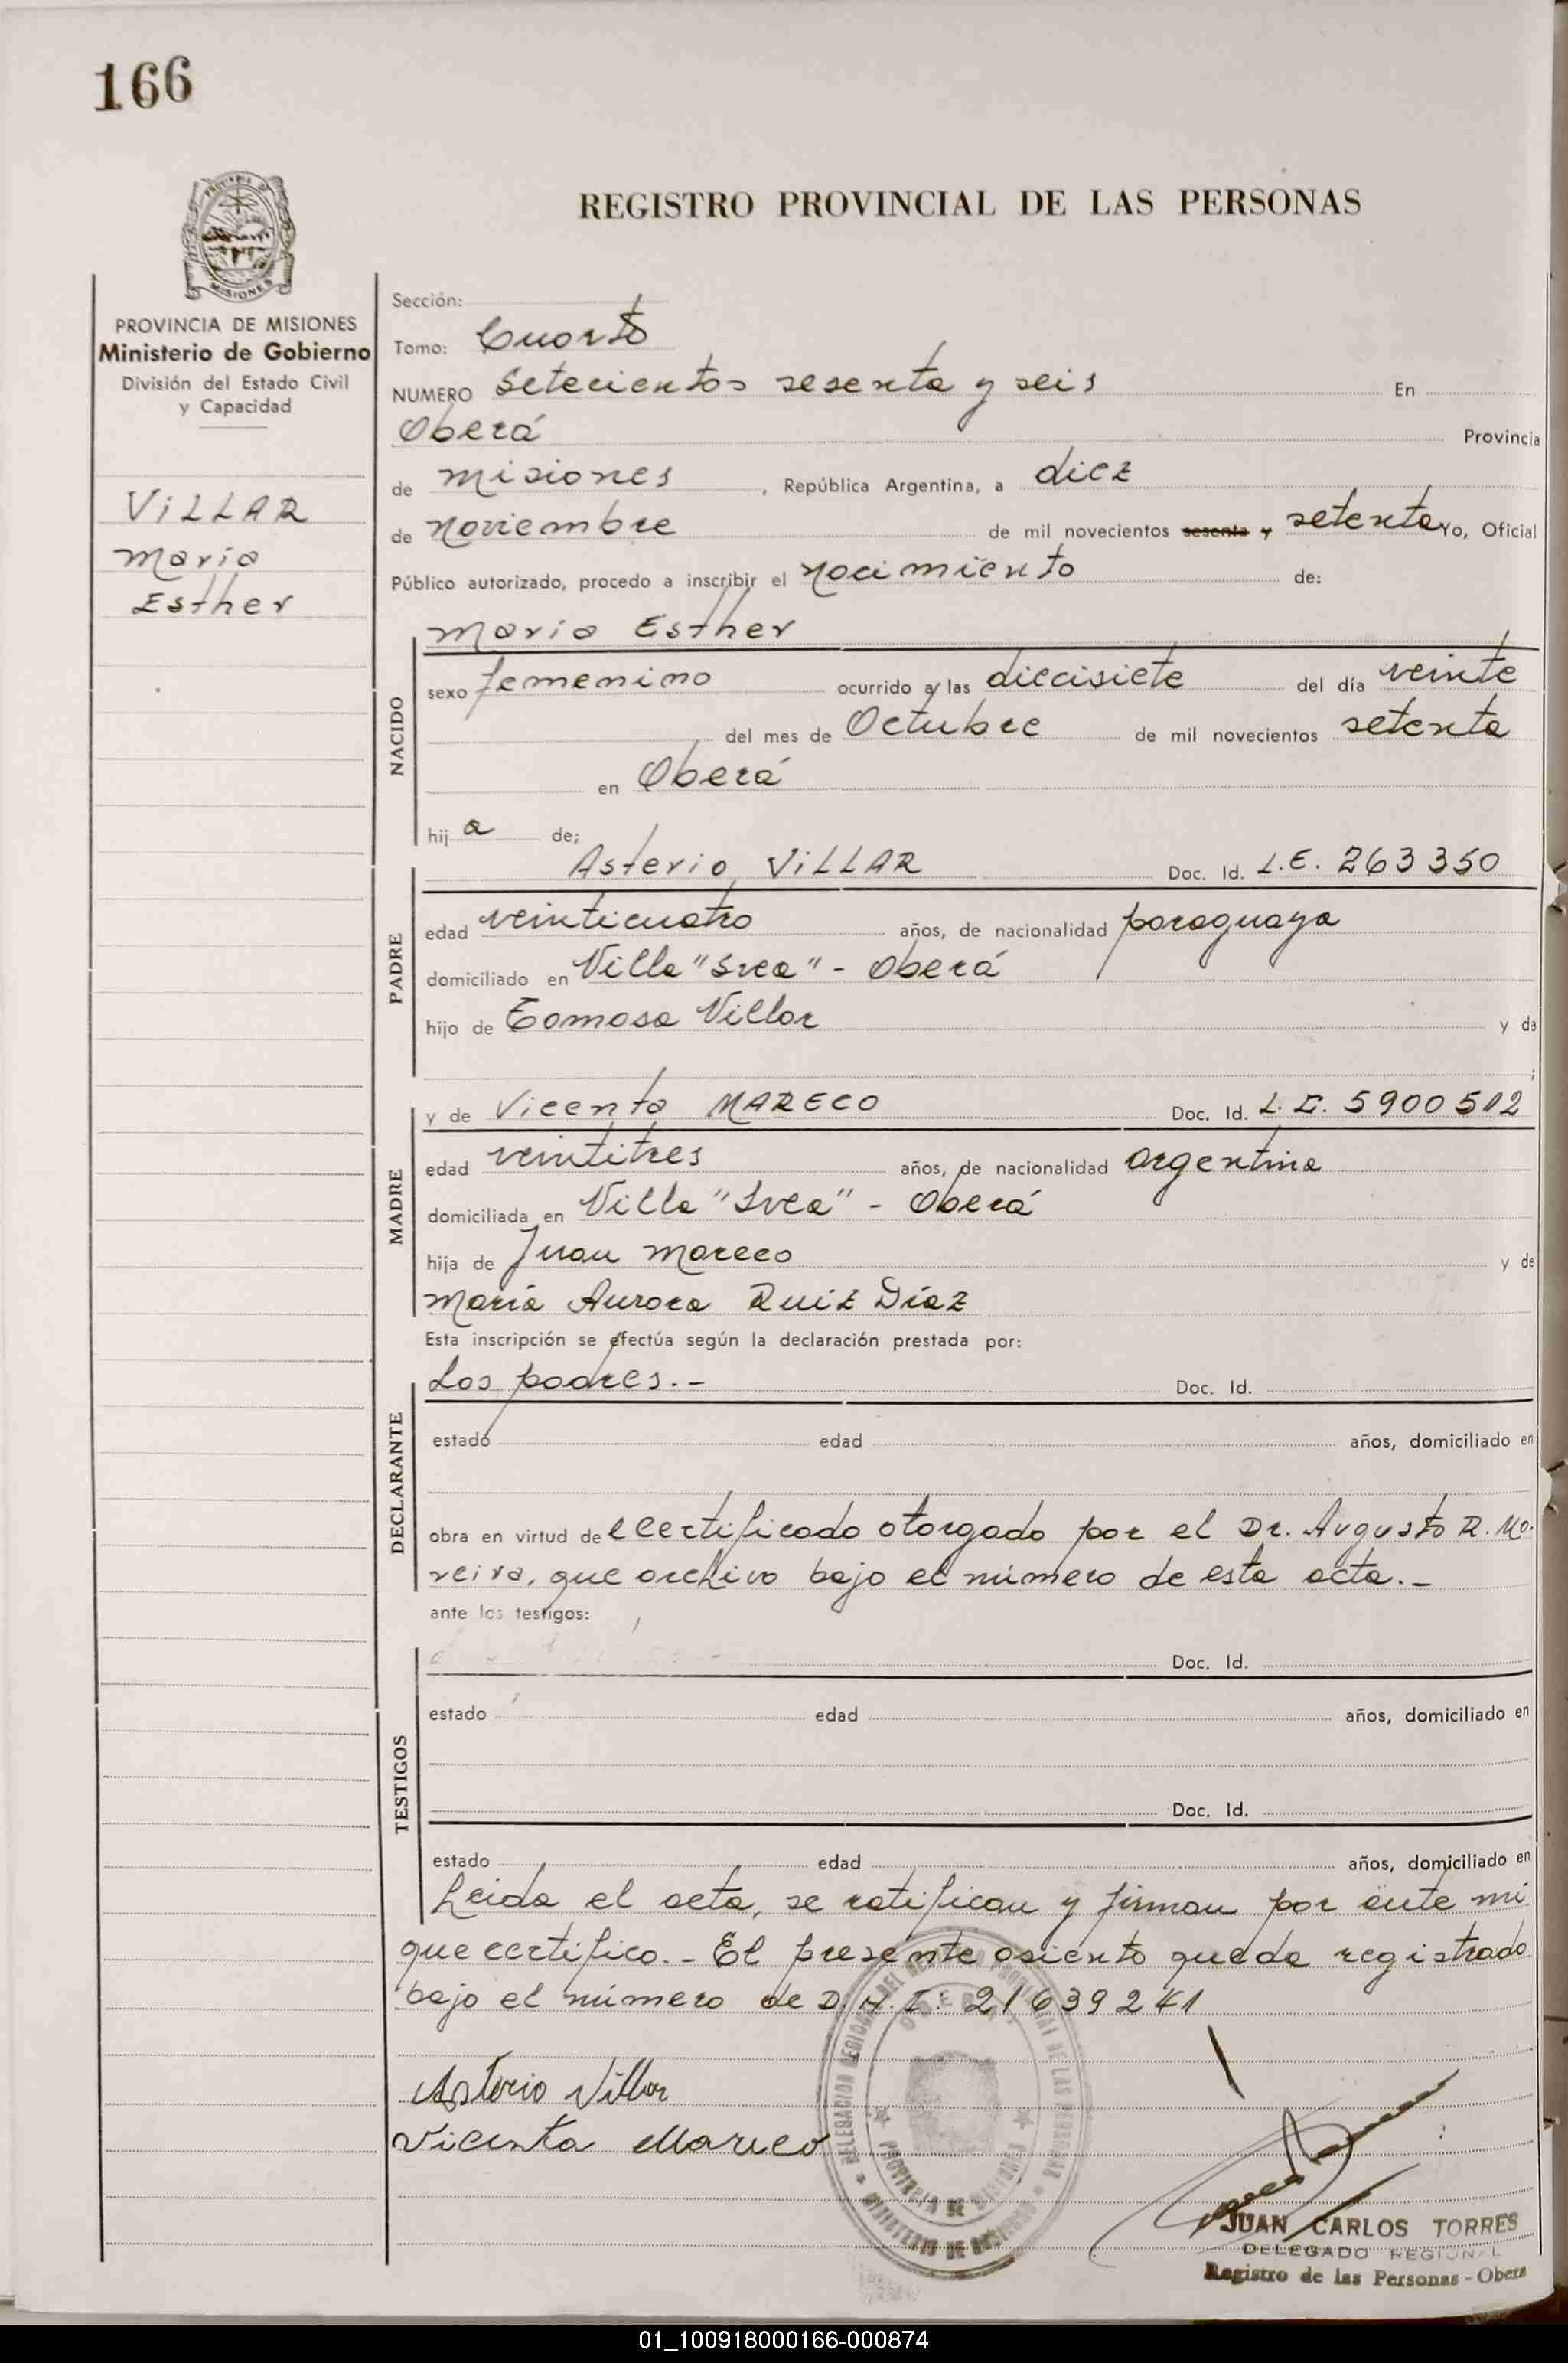 166
REGISTRO PROVINCIAL DE LAS PERSONAS
MISIONES
PROVINCIA DE MISIONES
Ministerio de Gobierno
División del Estado Civil
y Capacidad
VILLAR
María
Esther
Sección:
Tomo: Cuarto
NUMERO Setecientos sesenta y seis En
Oberá Provincia
de Misiones, República Argentina, a diez
de Noviembre de mil novecientos sesenta y setenta Yo, Oficial
Público autorizado, procedo a inscribir el nacimiento de:
María Esther
NACIDO
sexo femenino ocurrido a las diecisiete del día veinte
del mes de Octubre de mil novecientos setenta
en Oberá
hij a de;
PADRE
Asterio VILLAR Doc. Id. L.E. 263350
edad veinticuatro años, de nacionalidad paraguaya
domiciliado en Villa "Svea" - Oberá
hijo de Tomasa Villar y de
MADRE
y de Vicenta MARECO Doc. Id. L.C. 5900512
edad veintitres años, de nacionalidad argentina
domiciliada en Villa "Svea" - Oberá
hija de Juan Mareco y de
María Aurora RUIZ DíAZ
Esta inscripción se efectúa según la declaración prestada por:
DECLARANTE
Los padres.- Doc. Id.
estado edad años, domiciliado en
obra en virtud de certificado otorgado por el Dr. Augusto R. Mo-
reira, que archivo bajo el número de esta acta.-
ante los testigos:
TESTIGOS
Doc. Id.
estado edad años, domiciliado en
Doc. Id.
estado edad años, domiciliado en
Leida el acta, se ratifican y firman por ante mi
que certifico.- El presente asiento queda registrado
bajo el número de D.N.I. 21639241
Asterio Villar
Vicenta Mareco
PROVINCIA DE MISIONES
MINISTERIO DE GOBIERNO
JUAN CARLOS TORRES
DELEGADO REGIONAL
Registro de las Personas - Obera
01_100918000166-000874